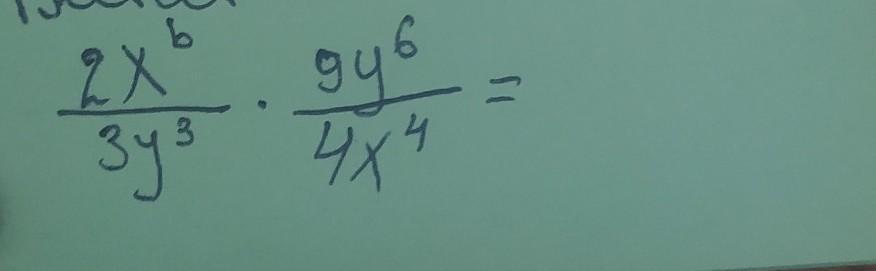 2x^6/3y^3 · 9y^6/4x^4 =